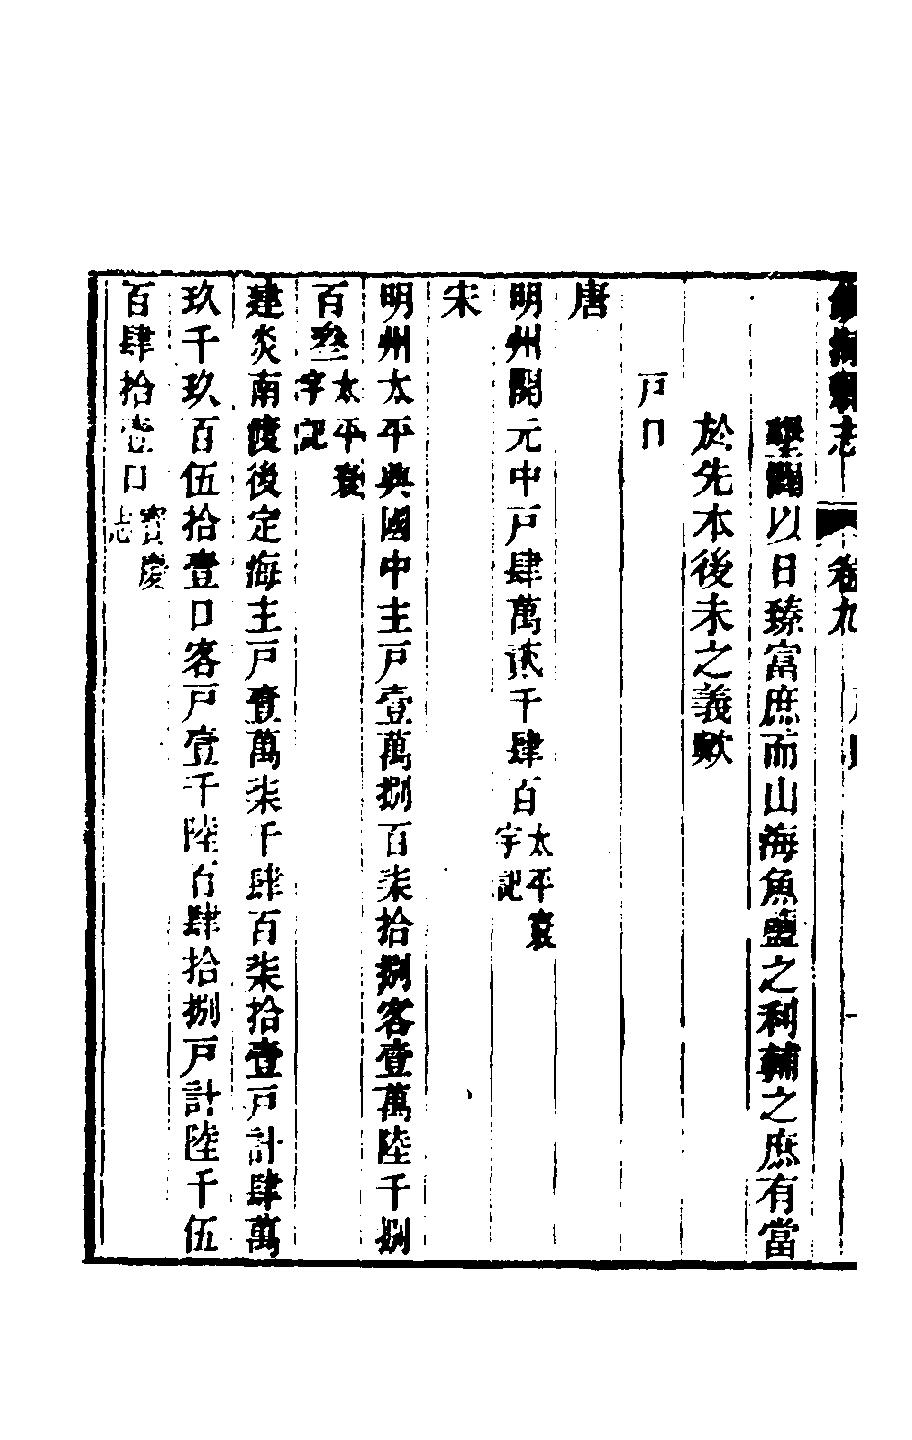 志 卷九
墾闢以日臻富庶而山海魚鹽之利輔之庶有當
於先本後末之義歟
戸口
唐
明州開元中戸肆萬貳千肆百太平寰宇記
宋
明州太平興國中主戸壹萬捌百柒拾捌客壹萬陸千捌
百叁太平寰宇記
建炎南渡後定海主戸壹萬柒千肆百柒拾壹戸計肆萬
玖千玖百伍拾壹口客戸壹千陸百肆拾捌戸計陸千伍
百肆拾壹口寶慶志